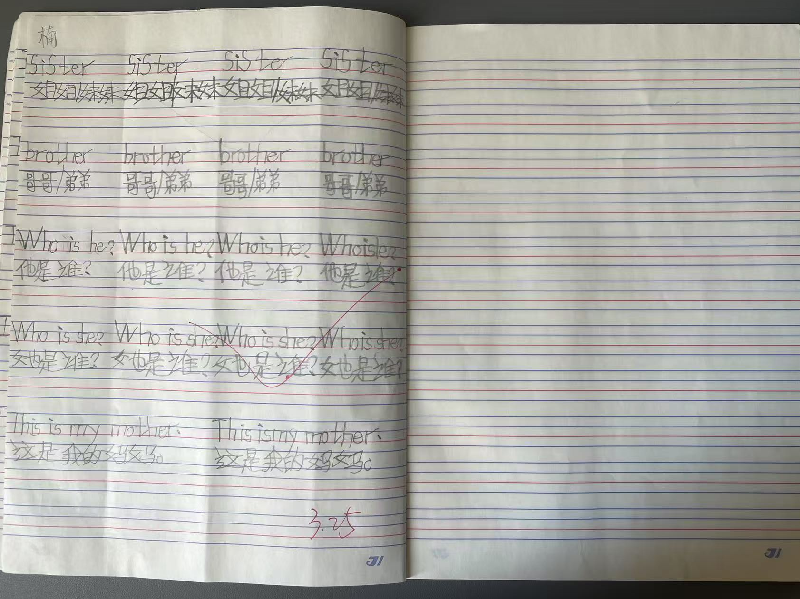 楠
sister sister sister sister
姐姐/妹妹 姐姐/妹妹 姐姐/妹妹 姐姐/妹妹
brother brother brother brother
哥哥/弟弟 哥哥/弟弟 哥哥/弟弟 哥哥/弟弟
Who is he? Who is he? Who is he? Who is he?
他是谁? 他是谁? 他是谁? 他是谁?
Who is she? Who is she? Who is she? Who is she?
她是谁? 她是谁? 她是谁? 她是谁?
This is my mother. This is my mother.
这是我的妈妈。 这是我的妈妈。
3.25